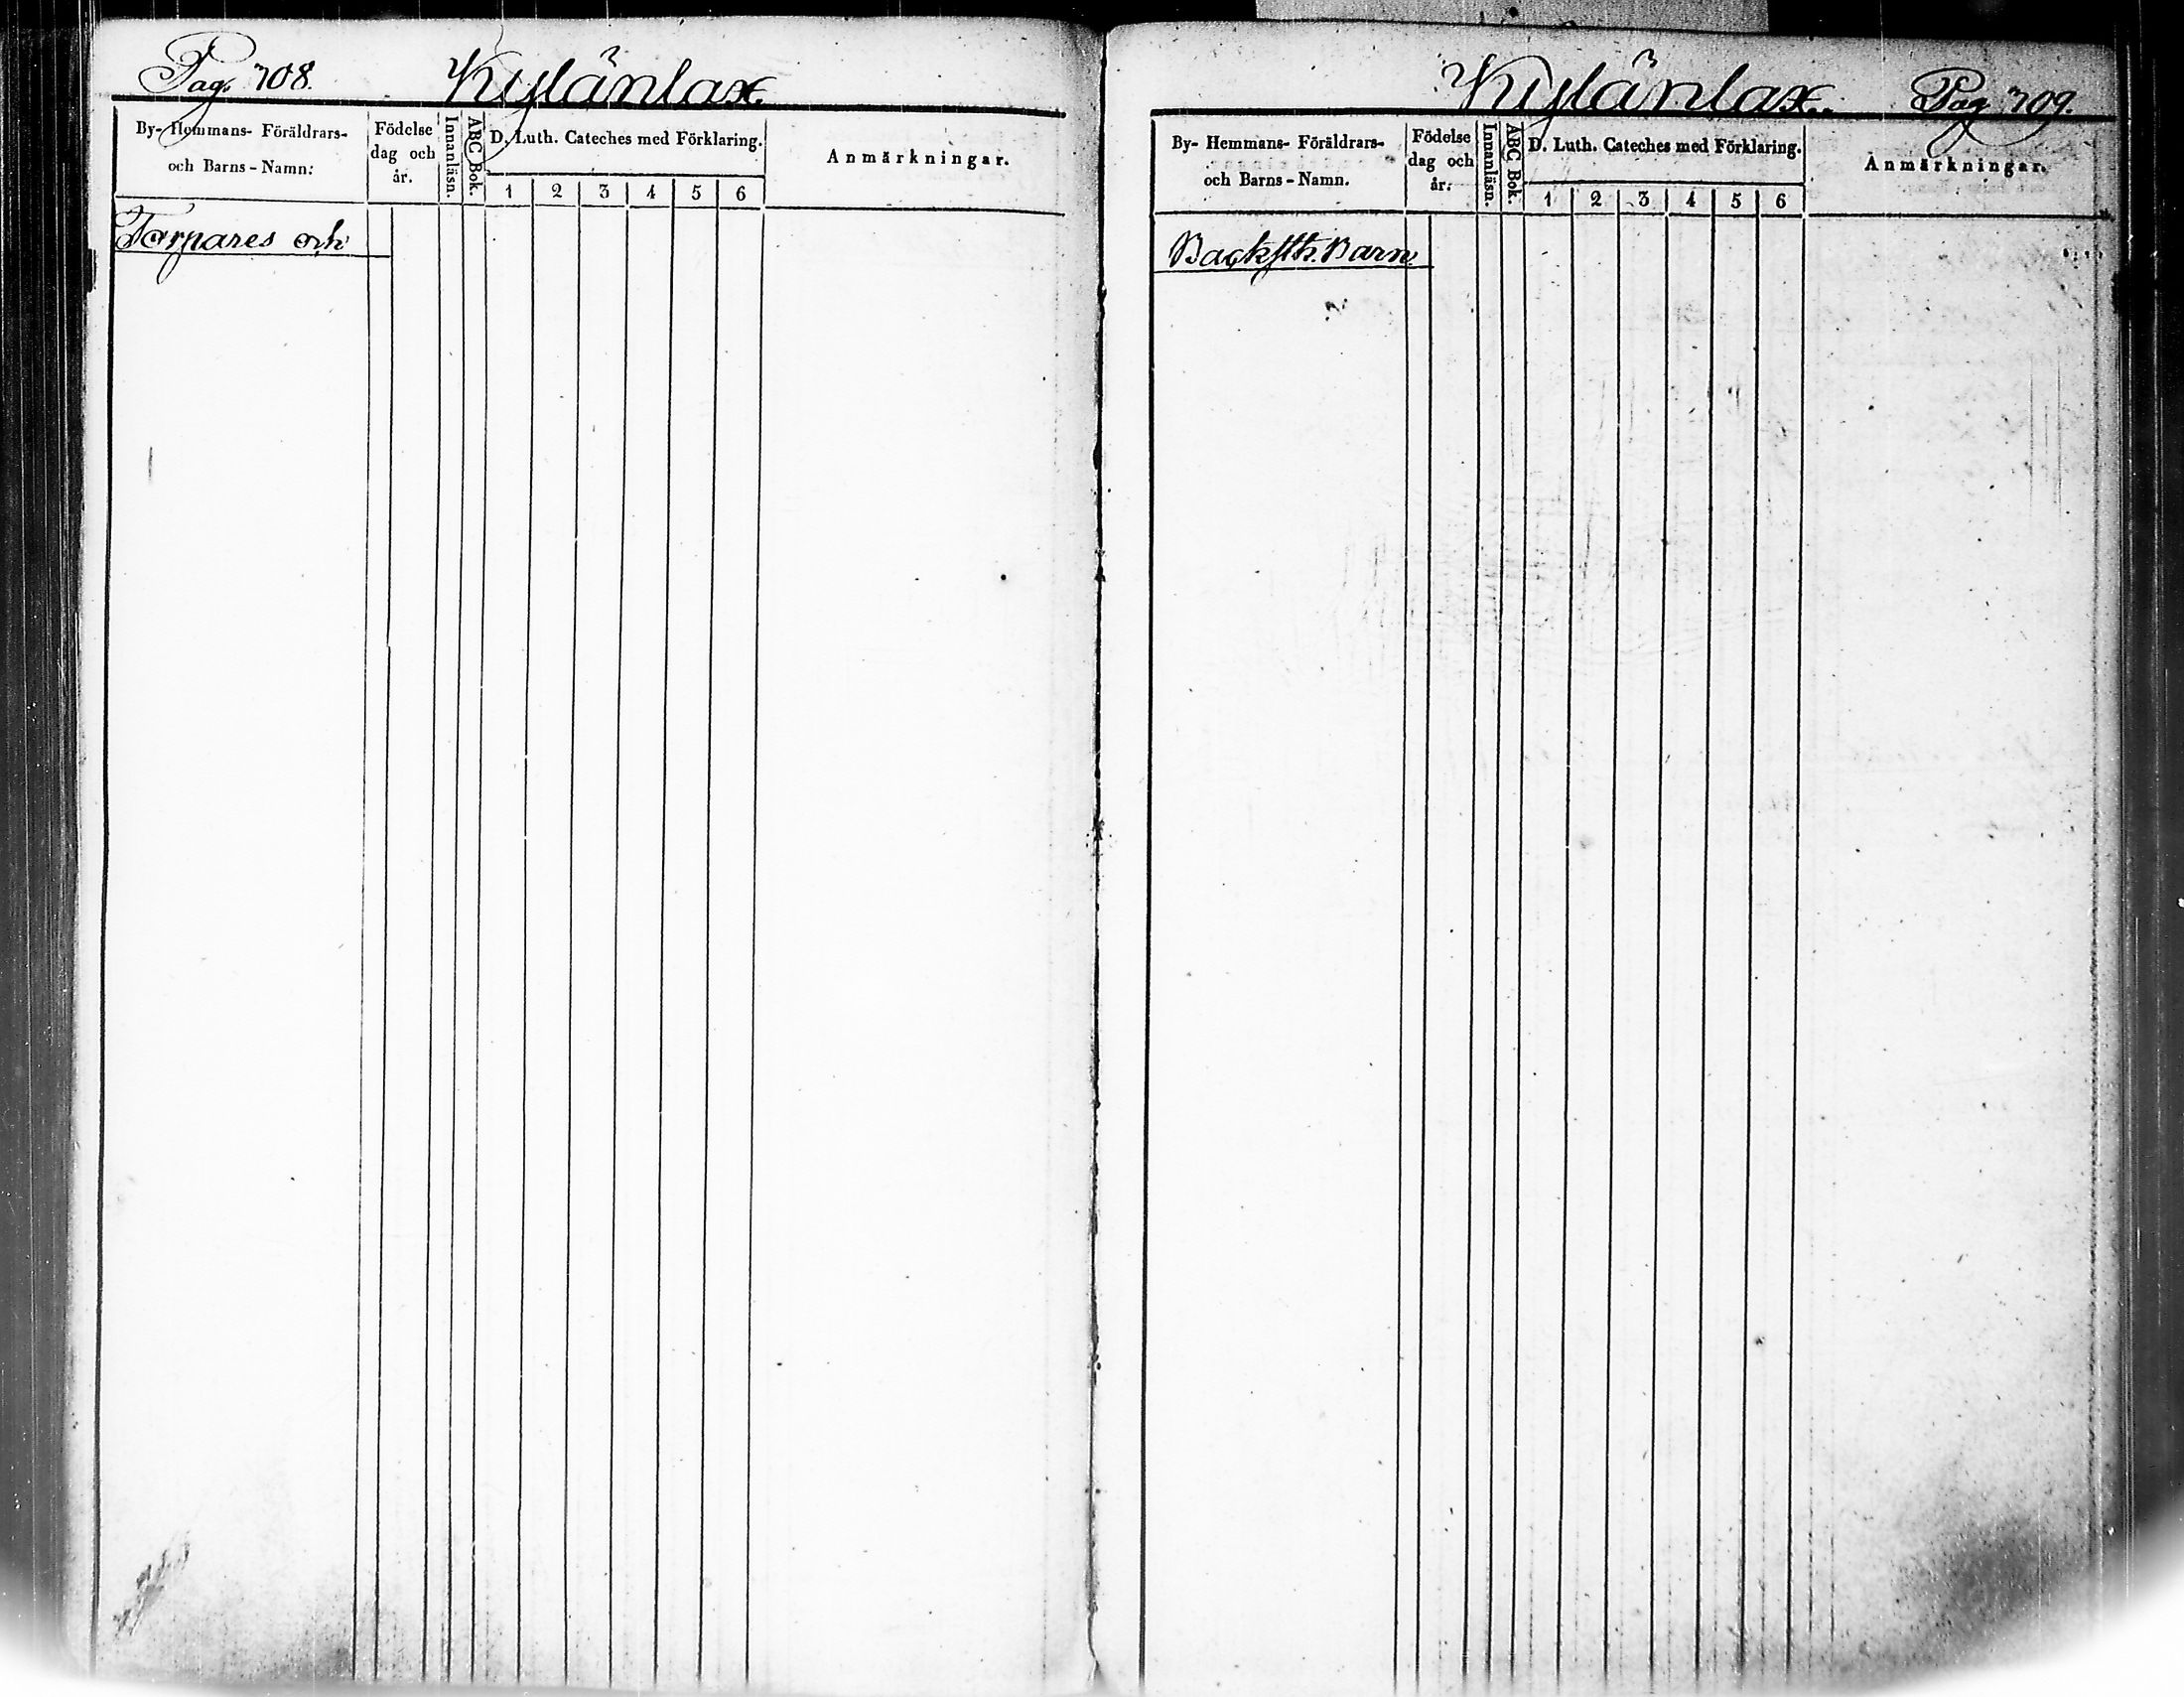 Pag. 708.
Kylänlax.
By- Hemmans- Föräldrars-
och Barns-Namn:
Födelse
dag och
år.
Innanläsn.
ABC Bok.
D. Luth. Cateches med Förklaring.
1 2 3 4 5 6
Anmärkningar.
Torpares och
Kylänlax.
Pag. 709.
By- Hemmans- Föräldrars-
och Barns-Namn.
Födelse
dag och
år:
Innanläsn.
ABC Bok.
D. Luth. Cateches med Förklaring.
1 2 3 4 5 6
Anmärkningar.
Backsth. Barn.